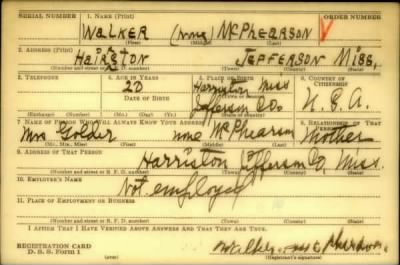 SERIAL NUMBER 1. NAME (Print) ORDER NUMBER
WALKER (none) McPHEARSON
(First) (Middle) (Last)
2. ADDRESS (Print)
HAIRSTON JEFFERSON MISS,
(Number and street or R. F. D. number) (Town) (County) (State)
3. TELEPHONE 4. AGE IN YEARS 5. PLACE OF BIRTH 6. COUNTRY OF CITIZENSHIP
20 Harriston Miss
DATE OF BIRTH Jefferson Co. U. S. A.
(Exchange) (Number) (Mo.) (Day) (Yr.) (State or country)
7. NAME OF PERSON WHO WILL ALWAYS KNOW YOUR ADDRESS 8. RELATIONSHIP OF THAT PERSON
Mrs Golder none McPhearson Mother
(Mr., Mrs., Miss) (First) (Middle) (Last)
9. ADDRESS OF THAT PERSON
Harriston Jefferson Co, Miss.
(Number and street or R. F. D. number) (Town) (County) (State)
10. EMPLOYER'S NAME
Not employed
11. PLACE OF EMPLOYMENT OR BUSINESS
(Number and street or R. F. D. number) (Town) (County) (State)
I AFFIRM THAT I HAVE VERIFIED ABOVE ANSWERS AND THAT THEY ARE TRUE.
REGISTRATION CARD
D. S. S. Form 1 Walker
(Registrant's signature)